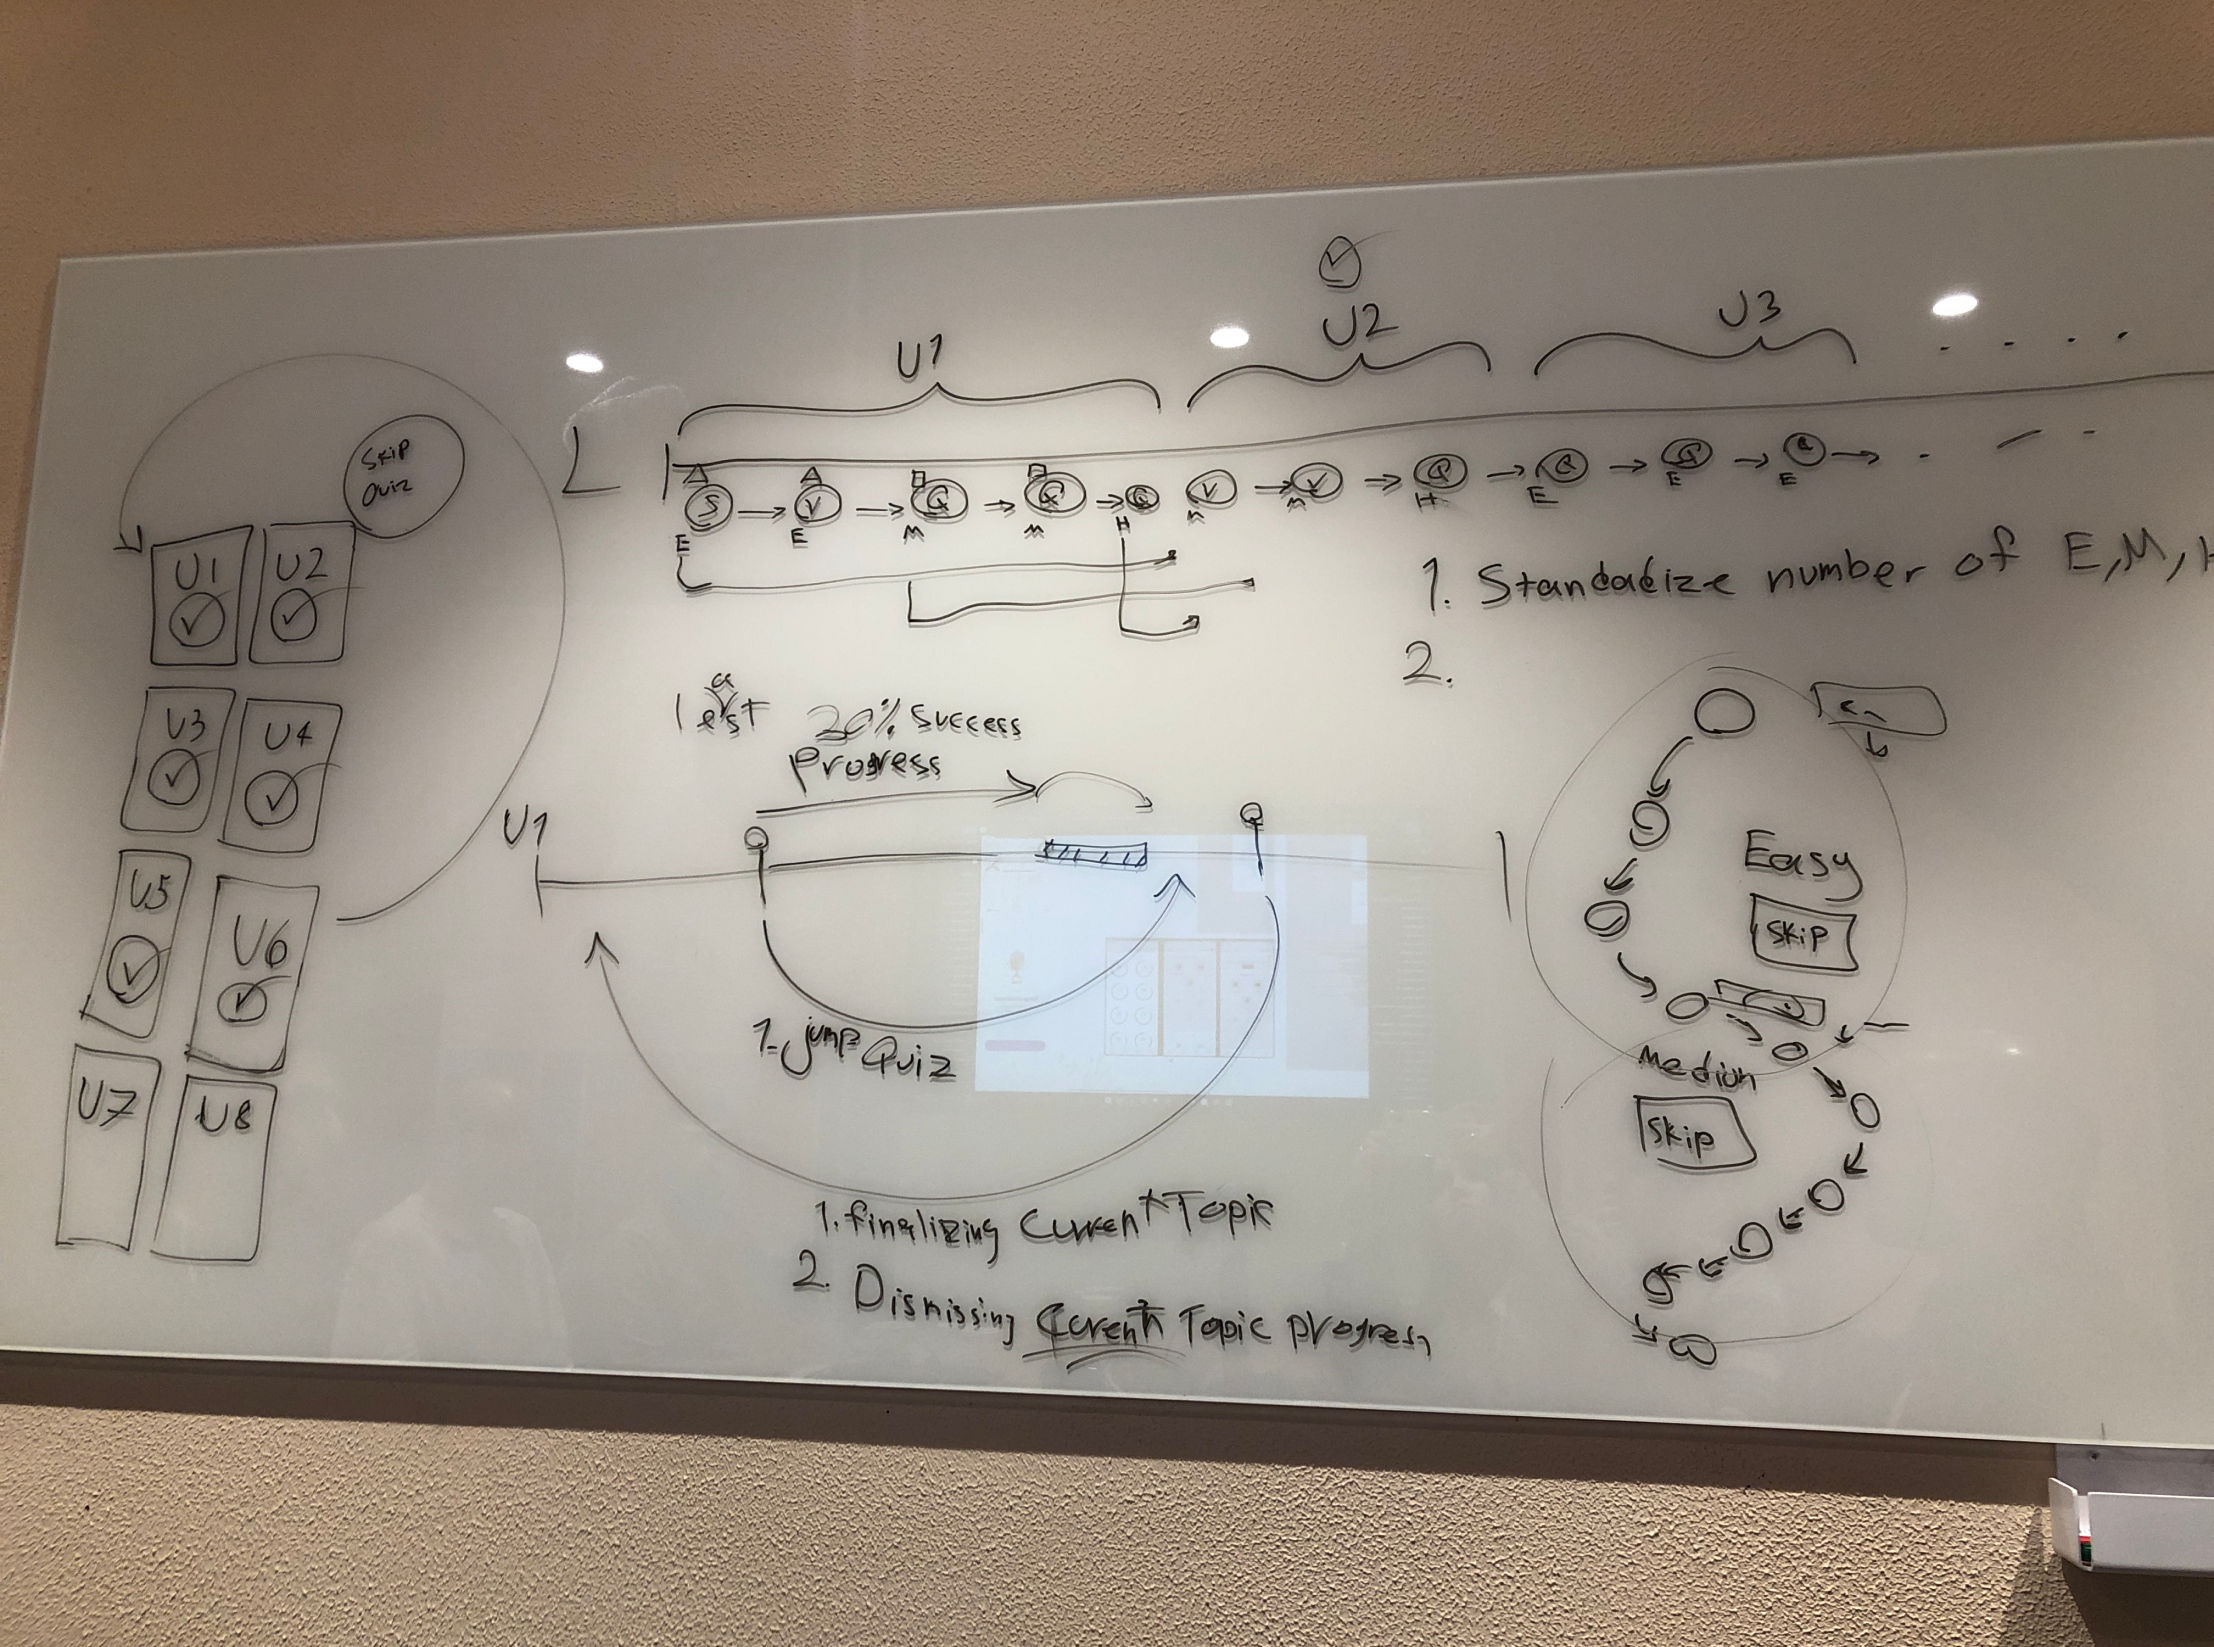 U1
U2
U3
Skip
Quiz
L
S
V
Q
Q
Q
V
V
Q
Q
Q
Q
E
E
M
M
H
M
M
H
E
E
E
U1
U2
U3
U4
U5
U6
U7
U8
1. Standadize number of E,M,H
2.
least 20% Success
Progress
U1
1. jump Quiz
1. finalizing Current Topic
2. Dismissing Current Topic progress
Easy
Skip
Medium
Skip